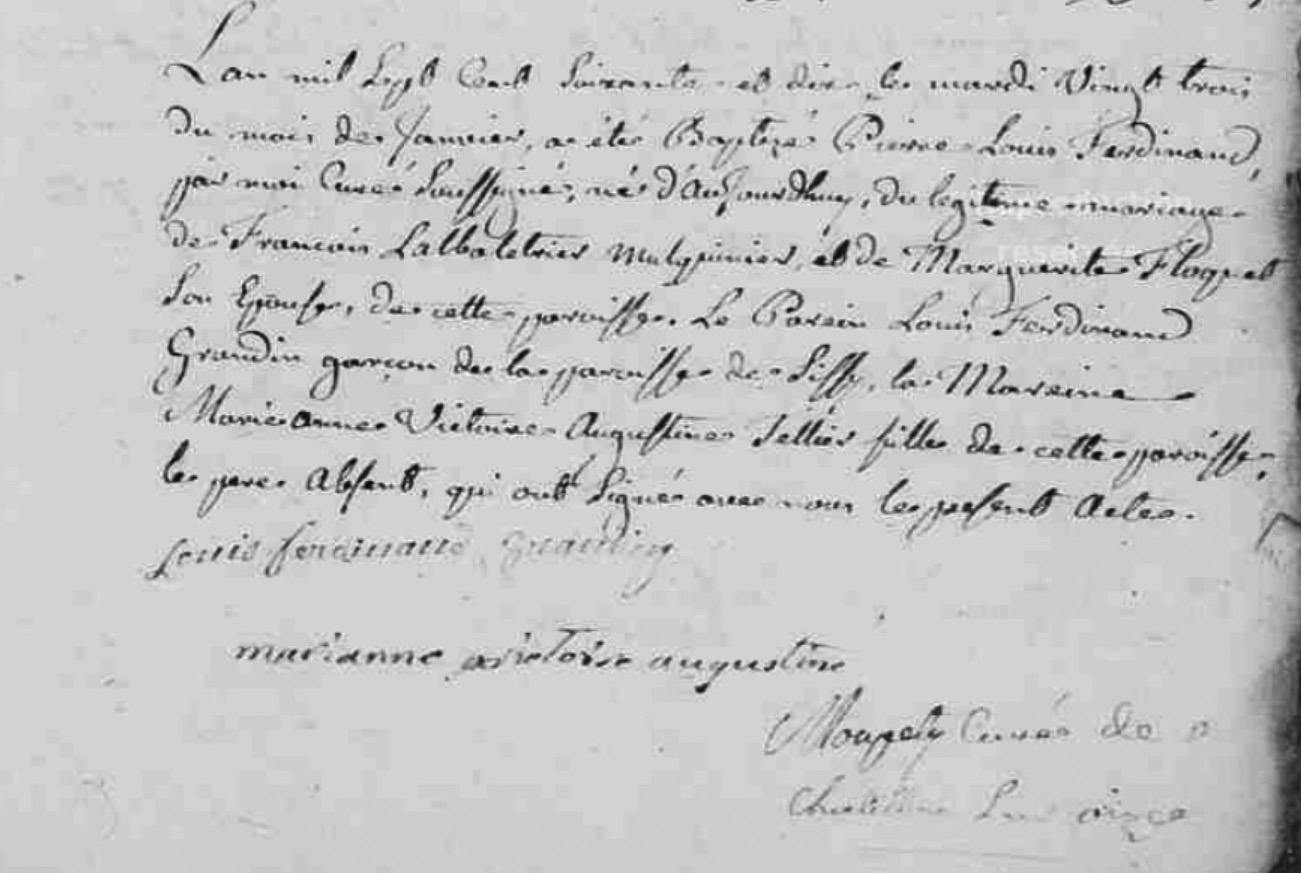 L'an mil Sept Cent Soixante et dix le mardi Vingt trois
du mois de Janvier, a été Baptizé Pierre Louis Ferdinand,
par moi Curé Soussigné, né d'AuJourdhuy, du legitime mariage
de Francois Lalbaletrier Mulquinier, et de Marguerite Floquet
Son Epouse, de cette paroisse. Le Parein Louis Ferdinand
Grandin garçon de la paroisse de Sissy, la Mareine
Marie anne Victoire Augustine Tellier fille de cette paroisse,
le pere Absent, qui ont Signé avec nous le present Acte.
Louis ferdinand grandin
marianne victoire augustine
Curé de
Chatillon Sur oise